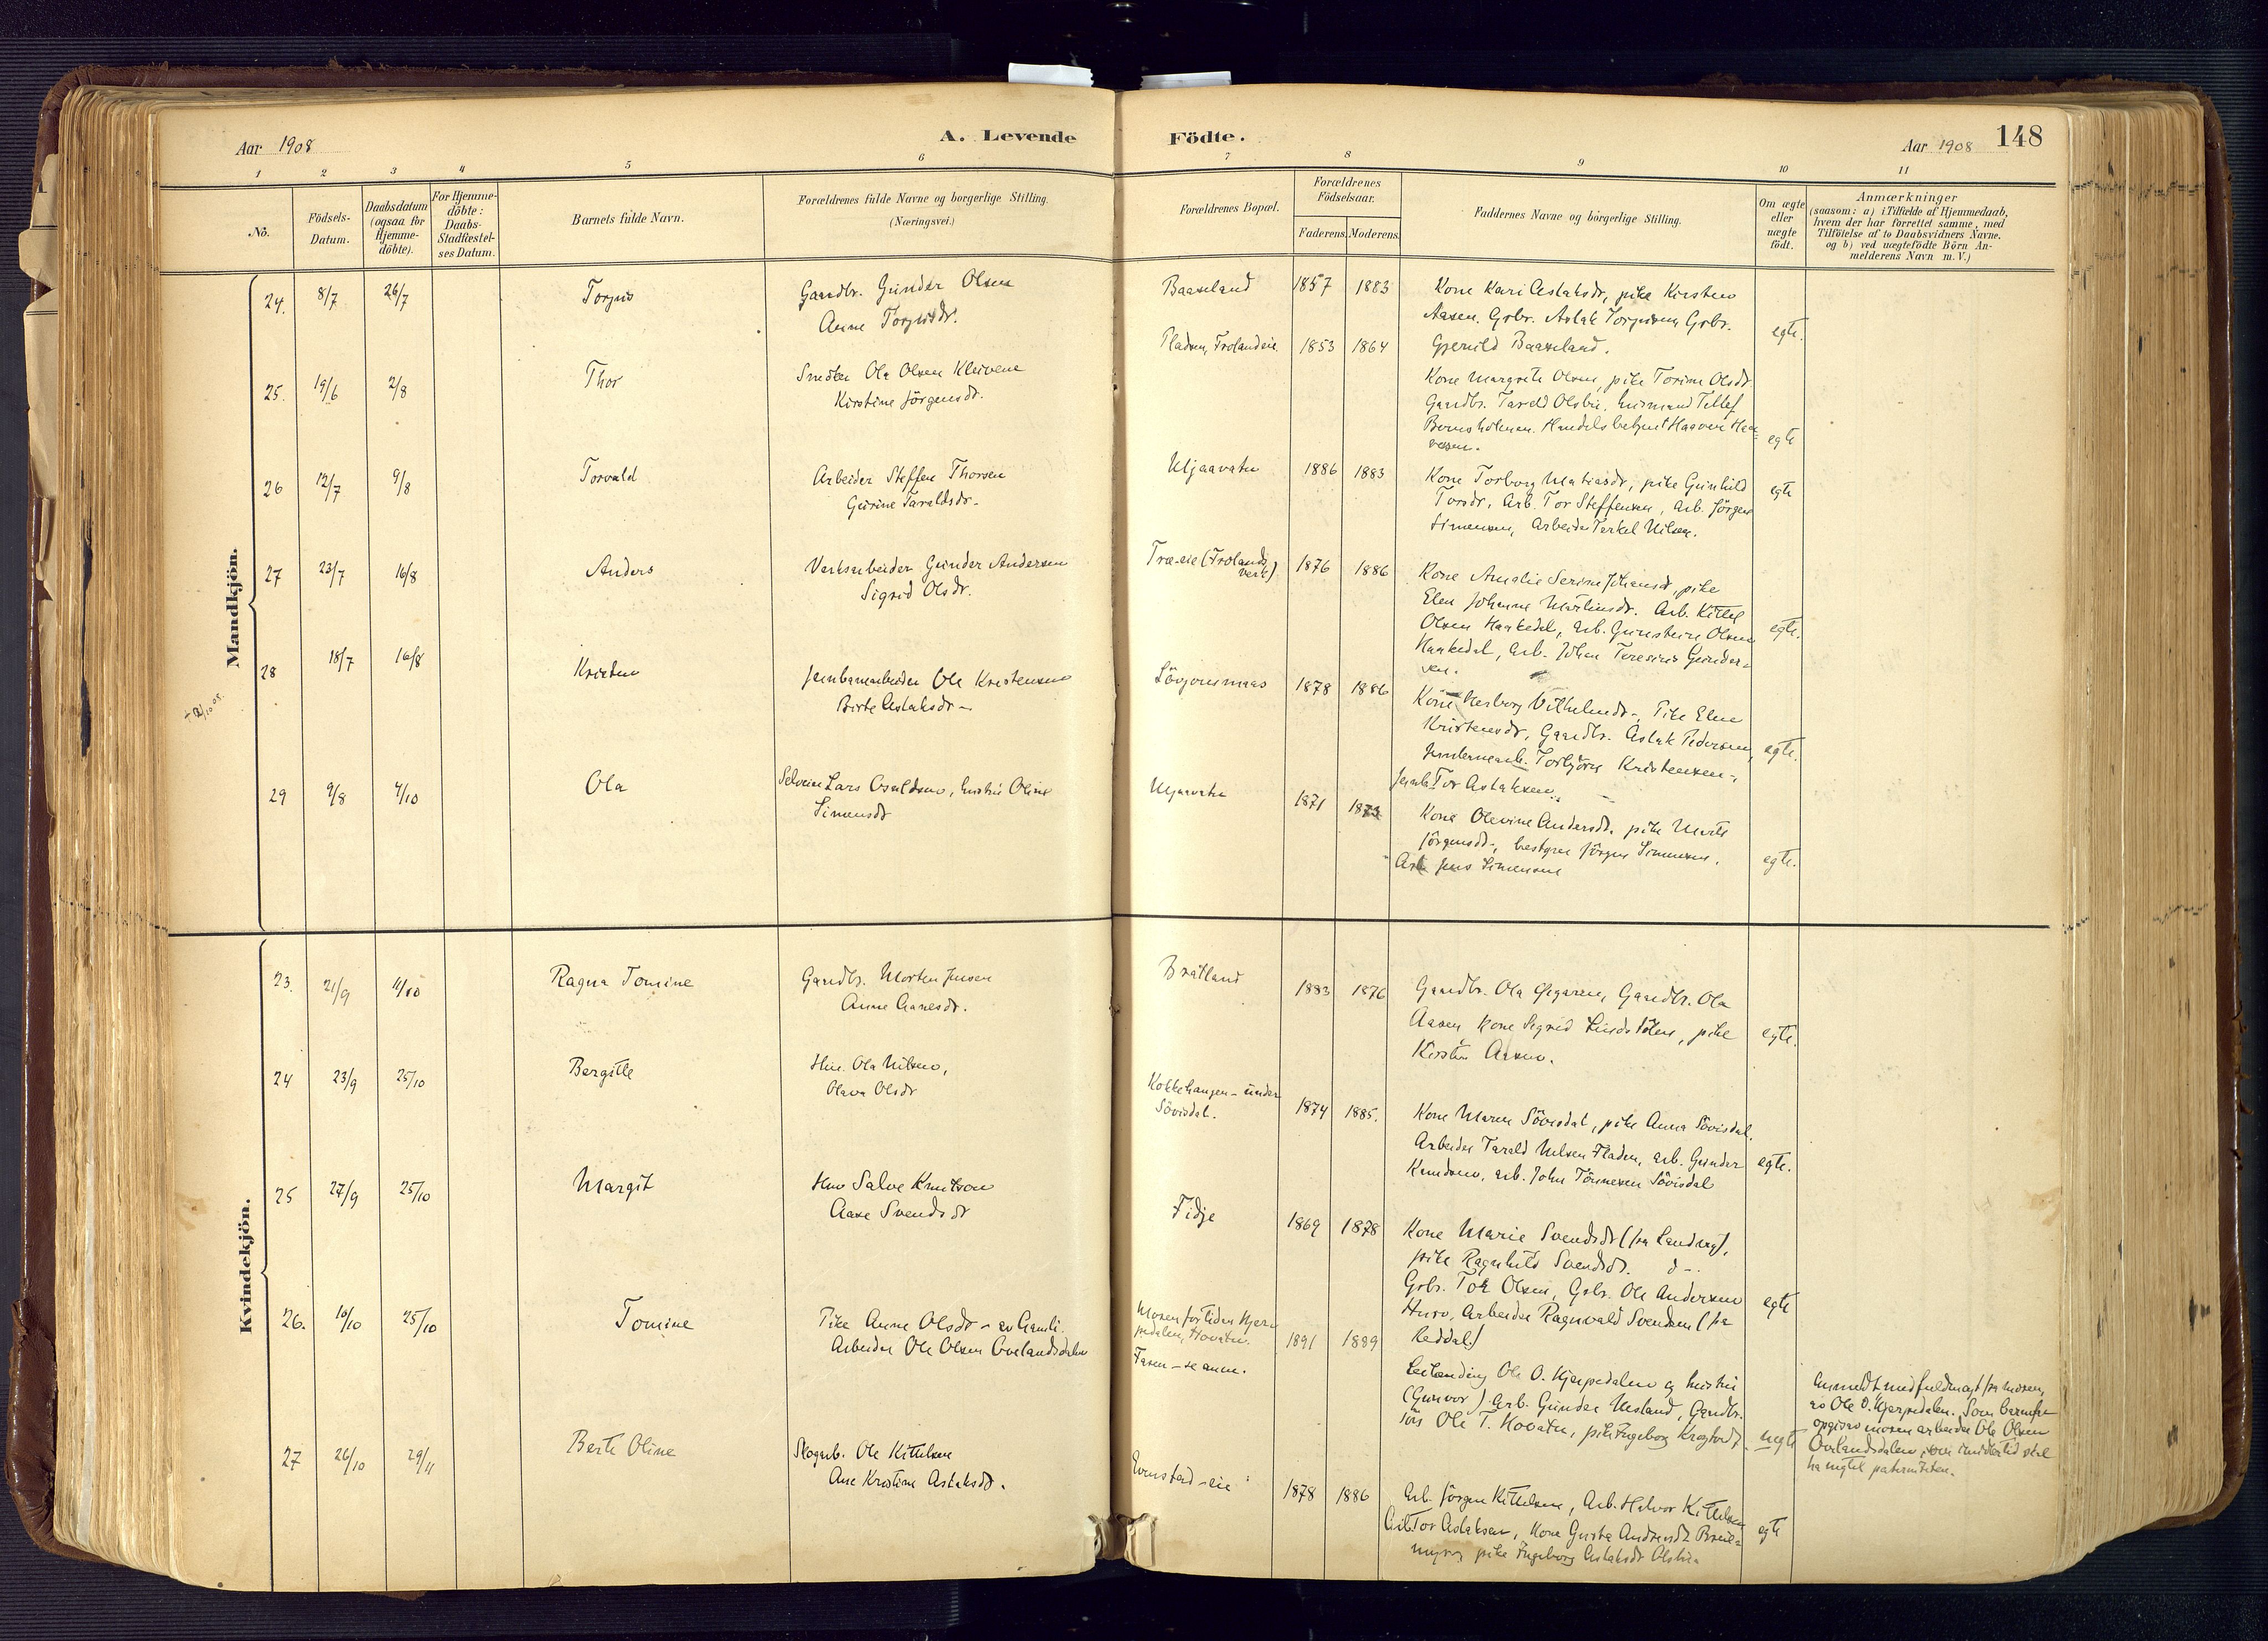 Aar 1908
A. Levende
Födte.
Aar 1908
148
1 2 3 4 5 6 7 8 9 10 11
No.
Födsels-
Datum.
Daabsdatum
(ogsaa for
Hjemme-
döbte).
For Hjemme-
döbte:
Daabs-
Stadfæstel-
ses Datum.
Barnets fulde Navn.
Forældrenes fulde Navne og borgerlige Stilling.
(Næringsvei.)
Forældrenes Bopæl.
Forældrenes
Födselsaar.
Faderens. Moderens.
Faddernes Navne og borgerlige Stilling.
Om ægte
eller
uægte
födt.
Anmærkninger
(saasom: a) i Tilfælde af Hjemmedaab,
hvem der har forrettet samme, med
Tilföielse af to Daabsvidners Navne.
og b) ved uægtefödte Börn An-
melderens Navn m. V.)
Mandkjön.
24. 8/7 26/7 Torjus
Gaardbr. Gunder Olsen
Anne Torjusdr.
Baaseland 1857 1883
Kone Kari Aslaksdr, pike Kirsten
Aasen. Grbr. Aslak Torjusen, Grbr.
Gjeruld Baaseland.
egte.
25. 19/6 2/8 Thor
Smeden Ola Olsen Kleivene
Kirstine Jörgensdr.
Pladsen, Frolandeie 1853 1864
Kone Margrete Olsen, pike Torine Olsdr.
Gaardbr. Tarald Olsbu, Husmand Tellef
Bomsholmen. Handelsbetjent Haavor Haa-
vorsen.
egte
26 12/7 9/8 Torvald
Arbeider Steffen Thorsen
Gurine Taraldsdr.
Mjaavatn 1886 1883
Kone Torborg Matiasdr, pike Gunhild
Torsdr, Arb. Tor Steffensen, Arb. Jörgen
Simensen, Arbeider Terkel Nilsen.
egte
27 23/7 16/8 Anders
Verksarbeider Gunder Andersen
Sigrid Olsdr.
Træ-eie (Frolands
verk) 1876 1886
Kone Amalie Serine Johansdr, pike
Elen Johanne Martinsdr. Arb. Kittel
Olsen Haukedal, arb. Gunstein Olsen
Haukedal, arb. Johan Teresius Gunder-
sen.
egte.
28 18/7 16/8 Kristen
Jernbanearbeider Ole Kristensen
Birte Aslaksdr
Lövjonsmaas 1878 1886
Kone Herborg Vilhelmsdr, Pike Elene
Kristensdr, Gaardbr. Aslak Pedersen,
Jernbanearb. Torbjörn Kristensen,
Jernb. Tor Aslaksen.
egte.
29 9/8 4/10 Ola
Selveier Lars Osuldsen, hustru Oline
Simensdr
Mjaavatn 1871 1873
Kone Olevine Andersdr. pike Marte
Jörgensdr, bestyrer Jörgen Simensen.
Arb Jens Simensen
egte.
Kvindekjön.
23. 21/9 11/10 Ragna Tomine
Gaardbr. Morten Jensen
Anne Aanesdr.
Bråtland 1883 1876
Gaardbr. Ola Øigaren, Gaardbr. Ola
Aasen Kone Sigrid Lindstölen, pike
Kirsten Aasen.
egte.
24 23/9 25/10 Bergitte
Hus. Ola Nilsen,
Olava Olsdr
Kokkehaugen - under
Sövisdal. 1874 1885.
Kone Maren Sövisdal, pike Anna Sövisdal.
Arbeider Tarald Nilsen Fladen, arb. Gunder
Knudsen, arb. John Tönnesen Sövisdal
egte.
25 27/9 25/10 Margit
Hus Salve Knutson
Aase Svendsdr
Fidje 1869 1878
Kone Marie Svendsdr (fra Landvig),
pike Ragnhild Svendsdr. d -.
Grbr. Tor Olsen, Grbr. Ole Andersen
Huro, Arbeider Ragnvald Svendsen (fra
Reddal)
egte
26. 10/10 25/10 Tomine
Pike Anne Olsdr - av Gamli.
Arbeider Ole Olsen Ovelandsdalen
Moren for tiden Hjerp
pedalen, Hovatn.
Faren - se anm.
1891 1889
Leilending Ole O. Hjerpedalen og hustru
(Gunvor) Arb. Gunder Uesland, Gaardbr.
sön Ole T. Hovatn, pike Ingeborg
uegte
Anmeldt med fuldmagt fra moren,
av Ole O. Hjerpedalen. Som barnefar
opgives moren arbeider Ole Olsen
Ovelandsdalen, som imidlertid skal
ha negtet paterniteten.
27 26/10 29/11 Berte Oline
Skogarb. Ole Kittelsen
Ane Kristine Aslaksdr.
Evenstad-eie 1878 1886
Arb. Jörgen Kittelsen, Arb. Halvor Kittelsen
Arb Tor Aslaksen, Kone Gusta Andersdr
pike Ingeborg Aslaksdr Olsbu
egte